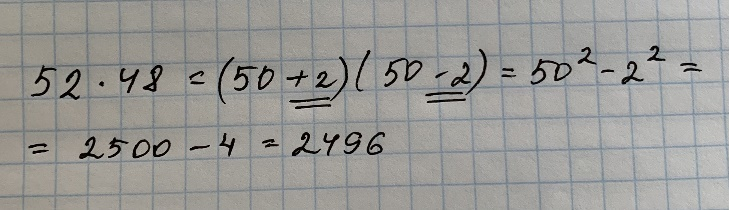 52 · 48 = (50 + 2)(50 - 2) = 50² - 2² =
= 2500 - 4 = 2496